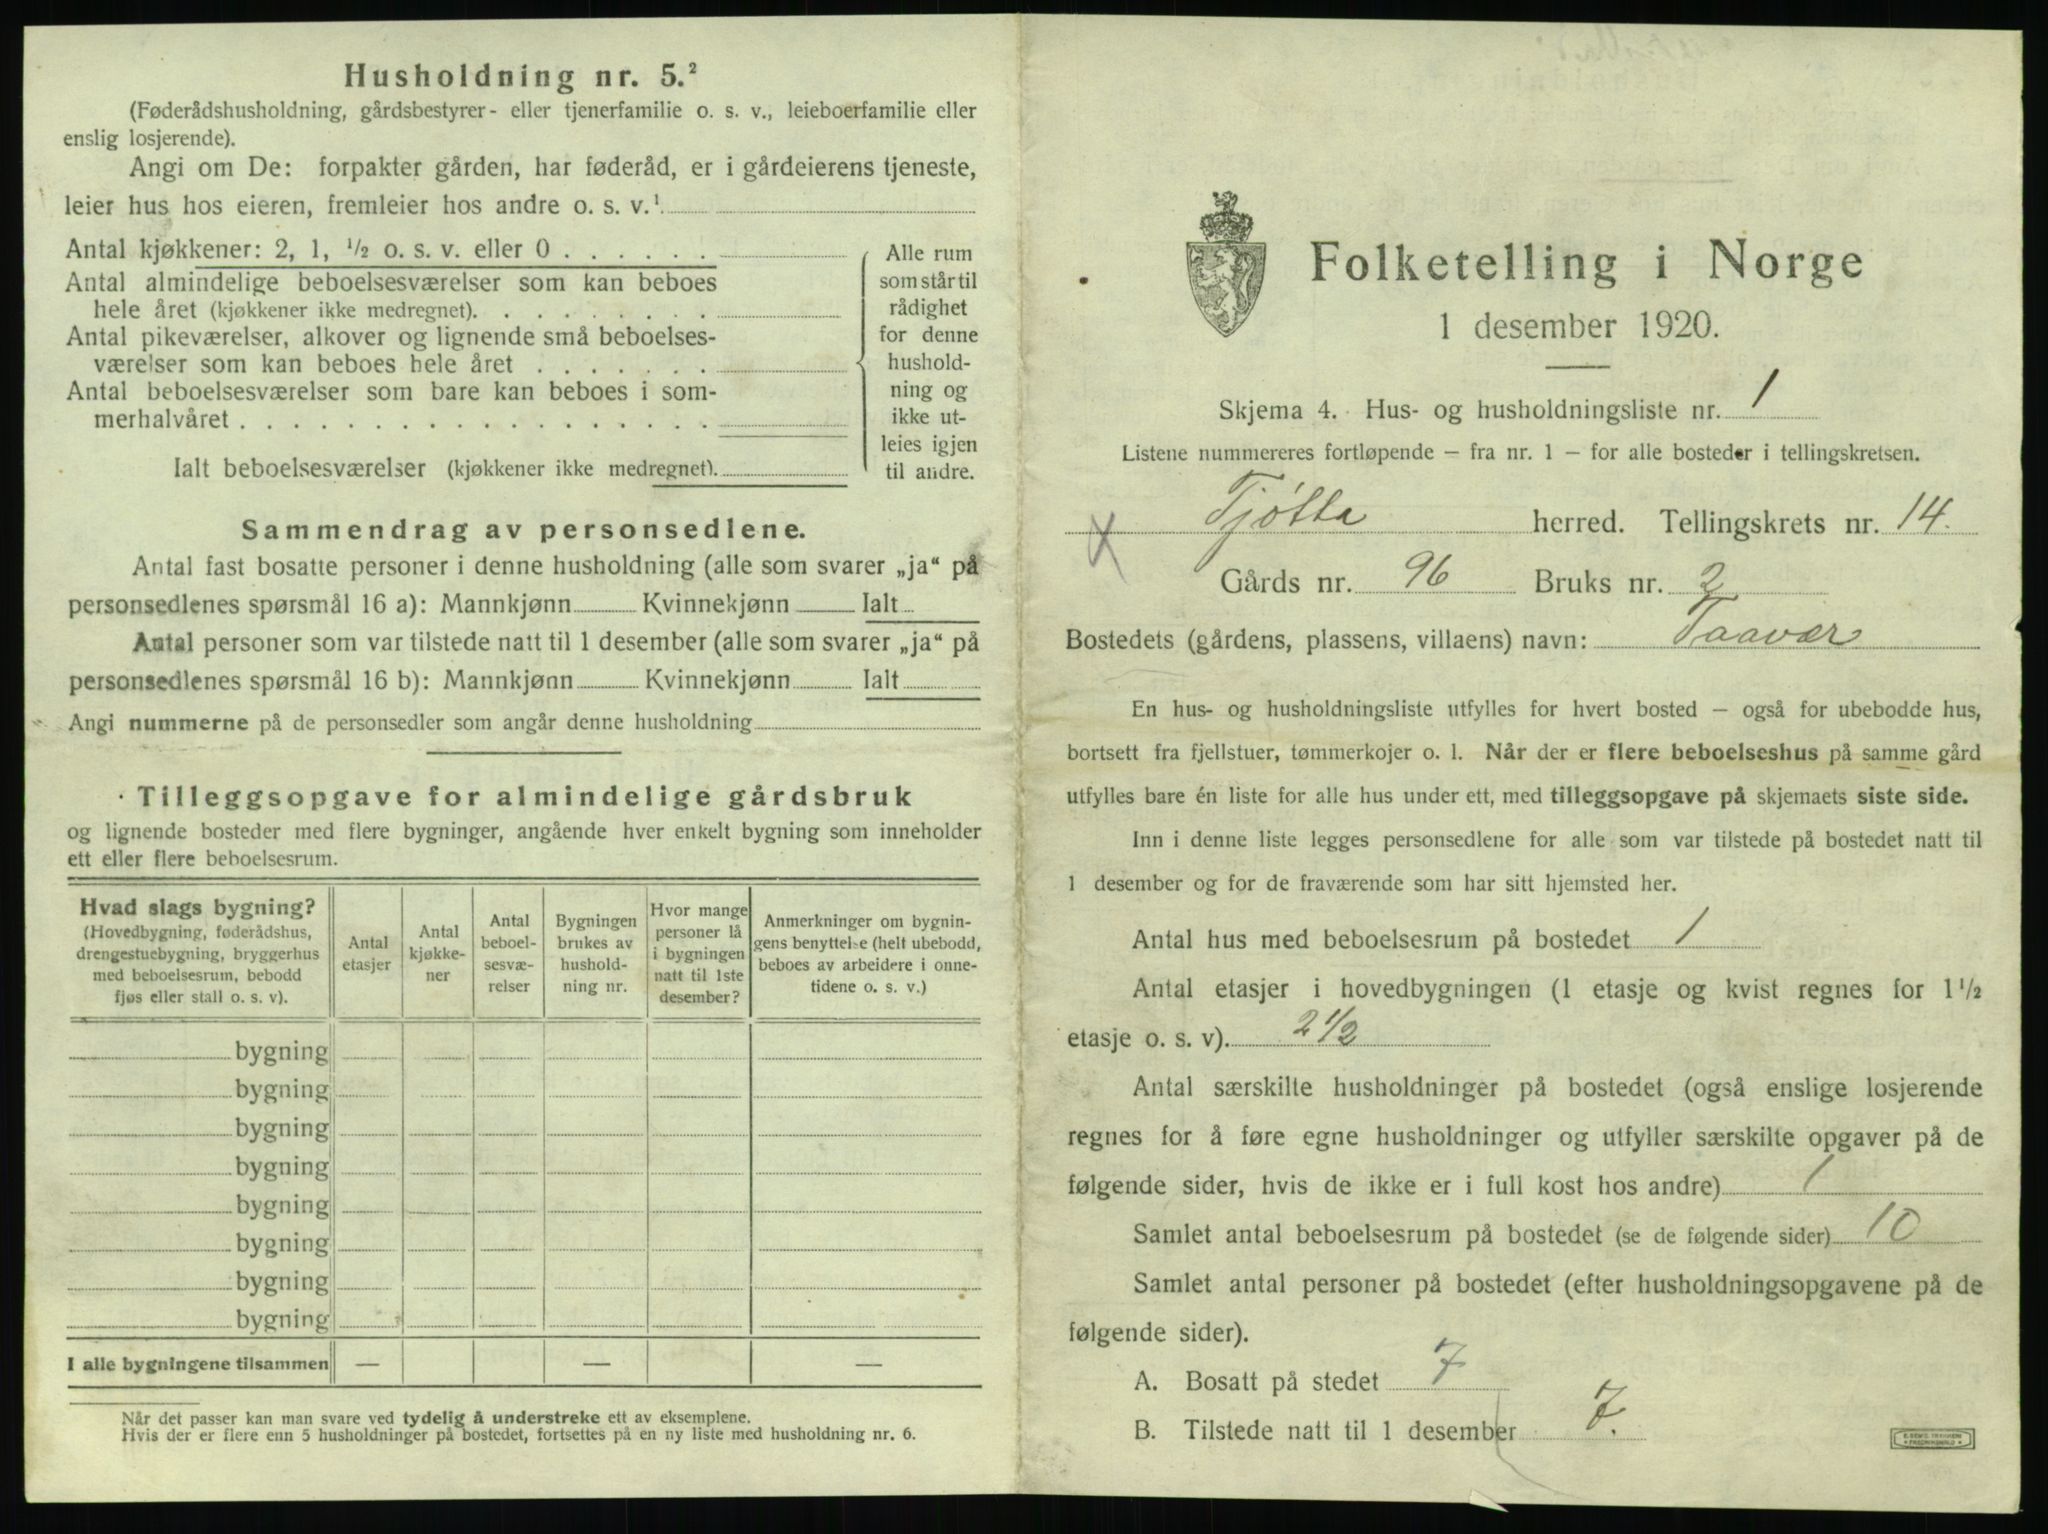 Husholdning nr. 5.²
(Føderådshusholdning, gårdsbestyrer- eller tjenerfamilie o. s. v., leieboerfamilie eller
enslig losjerende).
Angi om De: forpakter gården, har føderåd, er i gårdeierens tjeneste,
leier hus hos eieren, fremleier hos andre o. s. v.¹
Antal kjøkkener: 2, 1, ½ o. s. v. eller 0 . . . . . .
Antal almindelige beboelsesværelser som kan beboes
hele året (kjøkkener ikke medregnet). . . . . . . . .
Antal pikeværelser, alkover og lignende små beboelses-
værelser som kan beboes hele året . . . . . . .
Antal beboelsesværelser som bare kan beboes i som-
merhalvåret . . . . . . . . . . . . . . . . . .
Ialt beboelsesværelser (kjøkkener ikke medregnet).
Alle rum
som står til
rådighet
for denne
hushold-
ning og
ikke ut-
leies igjen
til andre.
Sammendrag av personsedlene.
Antal fast bosatte personer i denne husholdning (alle som svarer „ja“ på
personsedlenes spørsmål 16 a): Mannkjønn Kvinnekjønn Ialt
Antal personer som var tilstede natt til 1 desember (alle som svarer „ja“ på
personsedlenes spørsmål 16 b): Mannkjønn Kvinnekjønn Ialt
Angi nummerne på de personsedler som angår denne husholdning
Tilleggsopgave for almindelige gårdsbruk
og lignende bosteder med flere bygninger, angående hver enkelt bygning som inneholder
ett eller flere beboelsesrum.
Hvad slags bygning?
(Hovedbygning, føderådshus,
drengestuebygning, bryggerhus
med beboelsesrum, bebodd
fjøs eller stall o. s. v).
Antal
etasjer
Antal
kjøkke-
ner
Antal
beboel-
sesvæ-
relser
Bygningen
brukes av
hushold-
ning nr.
Hvor mange
personer lå
i bygningen
natt til 1ste
desember?
Anmerkninger om bygnin-
gens benyttelse (helt ubebodd,
beboes av arbeidere i onne-
tidene o. s. v.)
bygning
bygning
bygning
bygning
bygning
bygning
bygning
bygning
I alle bygningene tilsammen — — —
Når det passer kan man svare ved tydelig å understreke ett av eksemplene.
Hvis der er flere enn 5 husholdninger på bostedet, fortsettes på en ny liste med husholdning nr. 6.
Folketelling i Norge
1 desember 1920.
Skjema 4. Hus- og husholdningsliste nr. 1
Listene nummereres fortløpende – fra nr. 1 – for alle bosteder i tellingskretsen.
Tjøtta herred. Tellingskrets nr. 14.
Gårds nr. 96 Bruks nr. 2
Bostedets (gårdens, plassens, villaens) navn: Taavær
En hus- og husholdningsliste utfylles for hvert bosted – også for ubebodde hus,
bortsett fra fjellstuer, tømmerkojer o. l. Når der er flere beboelseshus på samme gård
utfylles bare én liste for alle hus under ett, med tilleggsopgave på skjemaets siste side.
Inn i denne liste legges personsedlene for alle som var tilstede på bostedet natt til
1 desember og for de fraværende som har sitt hjemsted her.
Antal hus med beboelsesrum på bostedet 1
Antal etasjer i hovedbygningen (1 etasje og kvist regnes for 1½
etasje o. s. v). 2½
Antal særskilte husholdninger på bostedet (også enslige losjerende
regnes for å føre egne husholdninger og utfyller særskilte opgaver på de
følgende sider, hvis de ikke er i full kost hos andre) 1
Samlet antal beboelsesrum på bostedet (se de følgende sider) 10
Samlet antal personer på bostedet (efter husholdningsopgavene på de
følgende sider).
A. Bosatt på stedet 7
B. Tilstede natt til 1 desember 7.